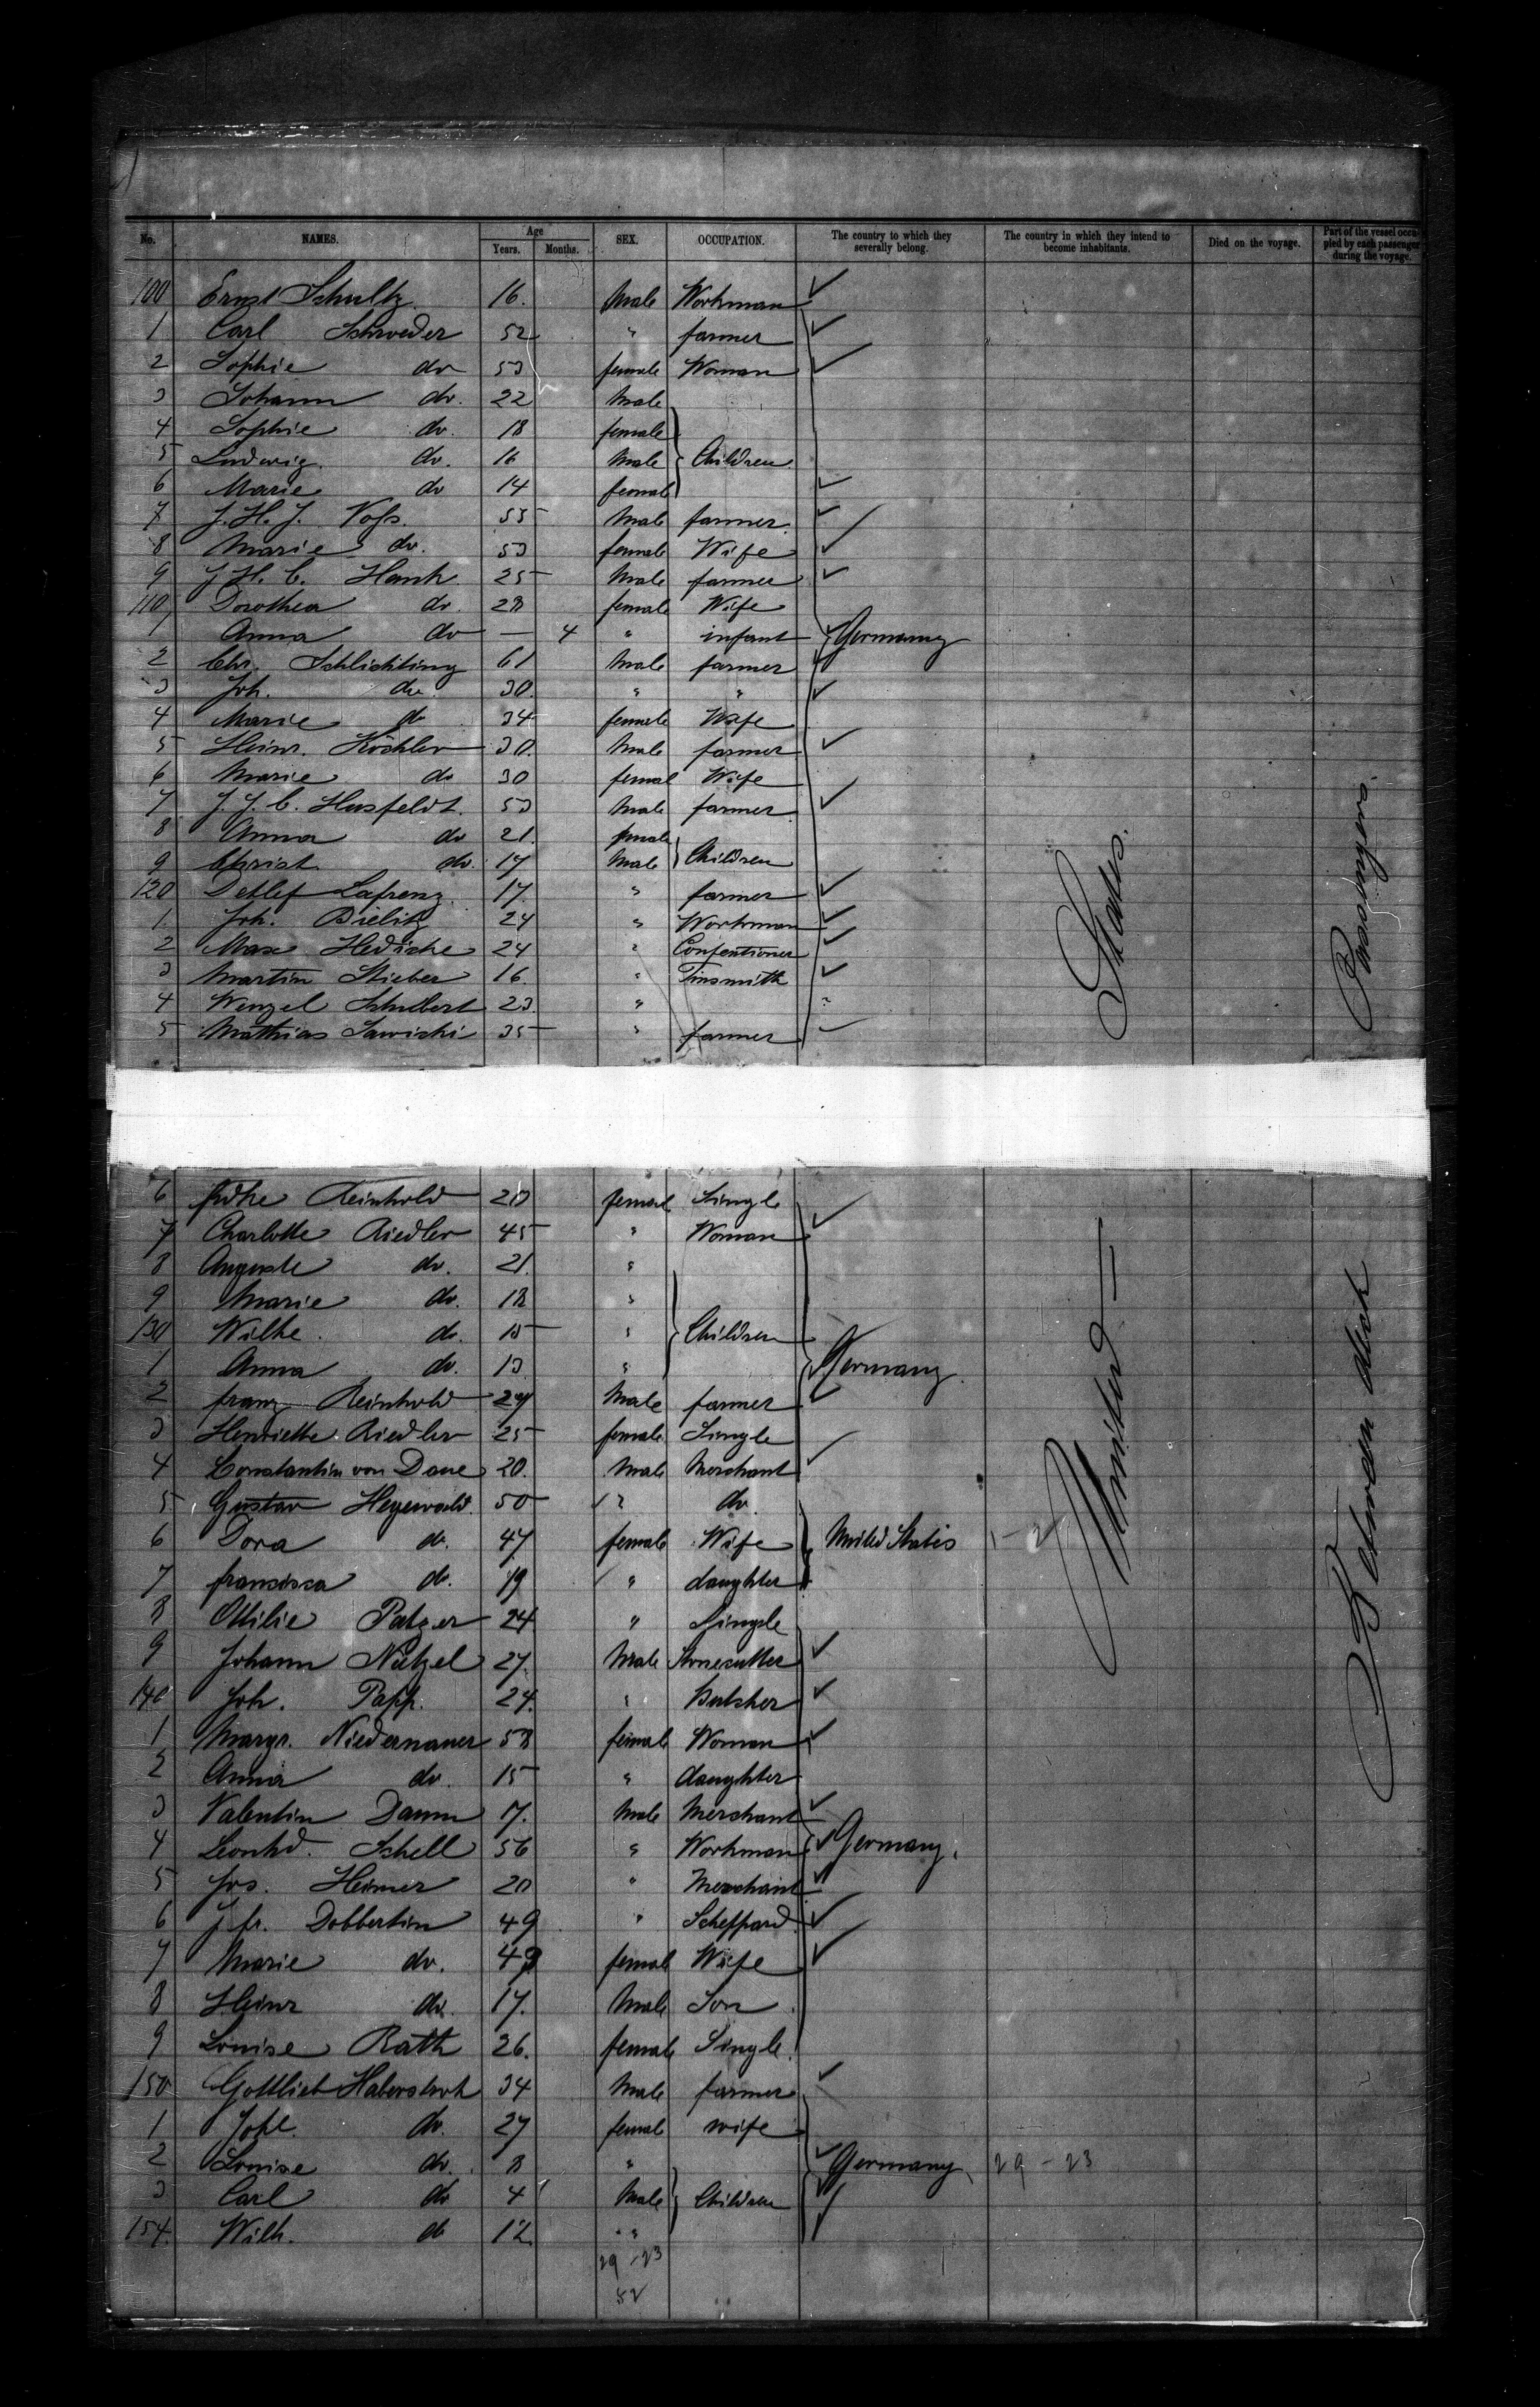 No. NAMES. Age Years. Months. SEX. OCCUPATION. The country to which they severally belong. The country in which they intend to become inhabitants. Died on the voyage. Part of the vessel occupied by each passenger during the voyage.
100 Ernst Schultz 16. Male Workman
1 Carl Schroeder 52 " farmer
2 Sophie do 53 female Woman
3 Johann do. 22 Male
4 Sophie do. 18 female
5 Ludwig do. 16 Male Children
6 Marie do 14 femal
7 J. H. J. Voss. 55 Male farmer
8 Marie do. 53 female Wife
9 J. H. C. Hank 25 Male farmer
110 Dorothea do. 28 female Wife
1 Anna do — 4 " infant Germany
2 Chr. Schlichting 61 Male farmer
3 Joh. do. 30. " "
4 Marie do 34 female Wife
5 Heinr. Köhler 30. Male farmer
6 Marie do 30 femal Wife
7 J. J. C. Hasfeldt. 53 Male farmer
8 Anna do 21. female
9 Christ. do. 17 Male Children
120 Detlef Lafrenz 17. " farmer
1. Joh. Bielitz 24 " Workman
2 Max Hedicke 24 " Confentioner
3 Martin Stieber 16. " Tinsmith
4 Wenzel Schubert 23. "
5 Mathias Sawicki 35 " farmer
6 Reinhold 20 female Single
7 Charlotte Riedler 45 " Woman
8 Auguste do. 21. "
9 Marie do. 18 "
130 Wilhe. do. 15 " Children
1 Anna do. 13 " Germany.
2 franz Reinhold 27 Male farmer
3 Henriette Riedler 25 female Single
4 Constantin von Daue 20. Male Merchant
5 Gustav Hegewald. 50 " do.
6 Dora do. 47 female Wife United States
7 francisca do. 19 " daughter
8 Ottilie Patzer 24 " Single
9 Johann Nützel 27. Male Stonecutter
140 Joh. Papp. 24. " Butcher
1 Margr. Niedernauer 58 female Woman
2 Anna do. 15 " daughter
3 Valentin Damm 17. Male Merchant
4 Leonhd. Schell 56 " Workman Germany.
5 Jos. Heimer 20 " Merchant
6 J. fr. Dobbertin 49 " Scheppard
7 Marie do. 49 femal Wife
8 Heinr do. 17. Male Son
9 Louise Rath 26. female Single.
150 Gottlieb Haberstroh 34 Male farmer
1 do. 27 female wife
2 Louise do. 8 " Germany 29 - 23
3 Carl do 4 Male Children
154. Wilh. do 12 "
29 - 23
52
United States.
Between deck Passengers.